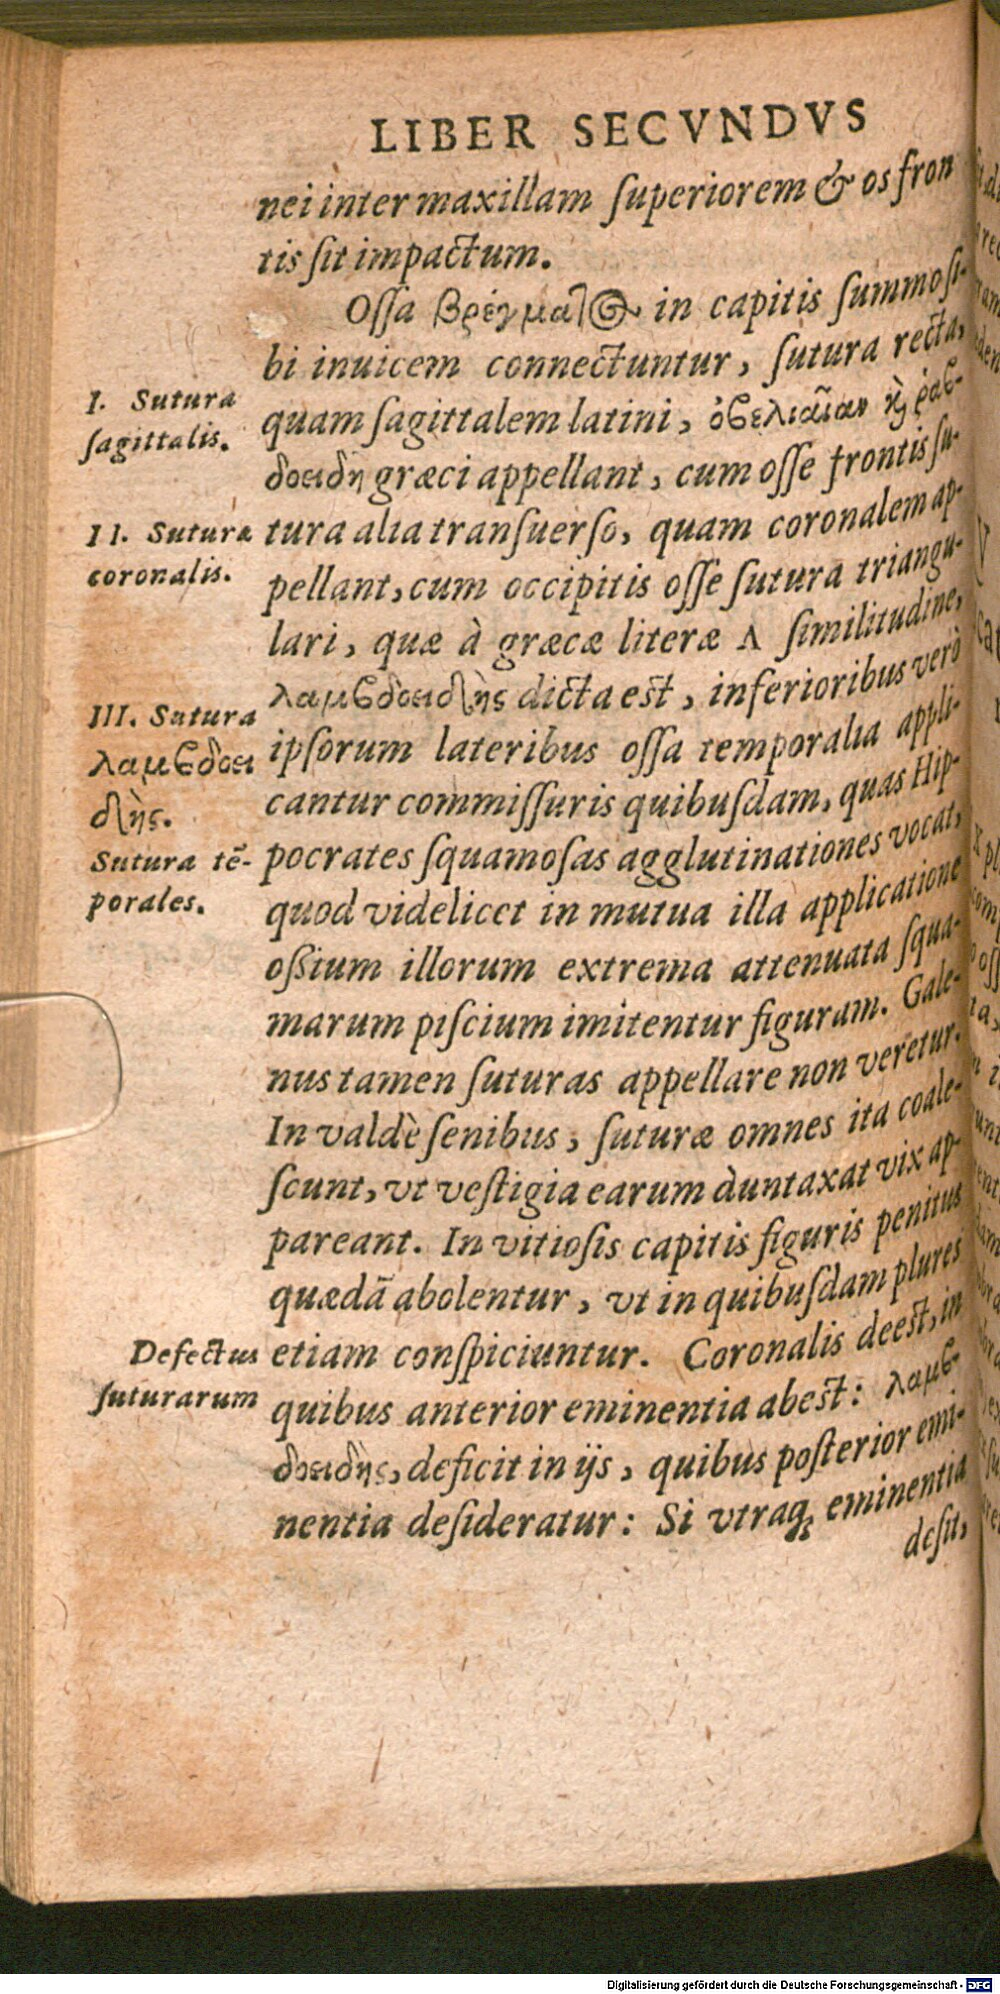 LIBER SECVNDVS
nei inter maxillam ſuperiorem & os fron
tis ſit impactum.
Oſſa βρέγματος in capitis ſummo ſi-
bi inuicem connectuntur, ſutura recta,
I. Sutura
ſagittalis.
quam ſagittalem latini, ὀβελιαίαν καὶ ῥαβ-
δοειδῆ græci appellant, cum oſſe frontis ſu-
II. Sutura
coronalis.
tura alia tranſuerſo, quam coronalem ap-
pellant, cum occipitis oſſe ſutura triangu-
lari, quæ à græcæ literæ Λ ſimilitudine,
λαμβδοειδὴς dicta eſt, inferioribus verò
III. Sutura
λαμβδοει
δὴς.
ipſorum lateribus oſſa temporalia appli-
cantur commiſſuris quibuſdam, quas Hip-
Sutura tē-
porales.
pocrates ſquamoſas agglutinationes vocat,
quod videlicet in mutua illa applicatione
oſsium illorum extrema attenuata ſqua-
marum piſcium imitentur figuram. Gale-
nus tamen ſuturas appellare non veretur.
In valdè ſenibus, ſuturæ omnes ita coale-
ſcunt, vt veſtigia earum duntaxat vix ap-
pareant. In vitioſis capitis figuris penitus
quædā abolentur, vt in quibuſdam plures
Defectus
ſuturarum
etiam conſpiciuntur. Coronalis deeſt, in
quibus anterior eminentia abeſt: λαμβ-
δοειδὴς, deficit in ijs, quibus poſterior emi-
nentia deſideratur: Si vtraq; eminentia
deſit,
Digitalisierung gefördert durch die Deutsche Forschungsgemeinschaft - DFG